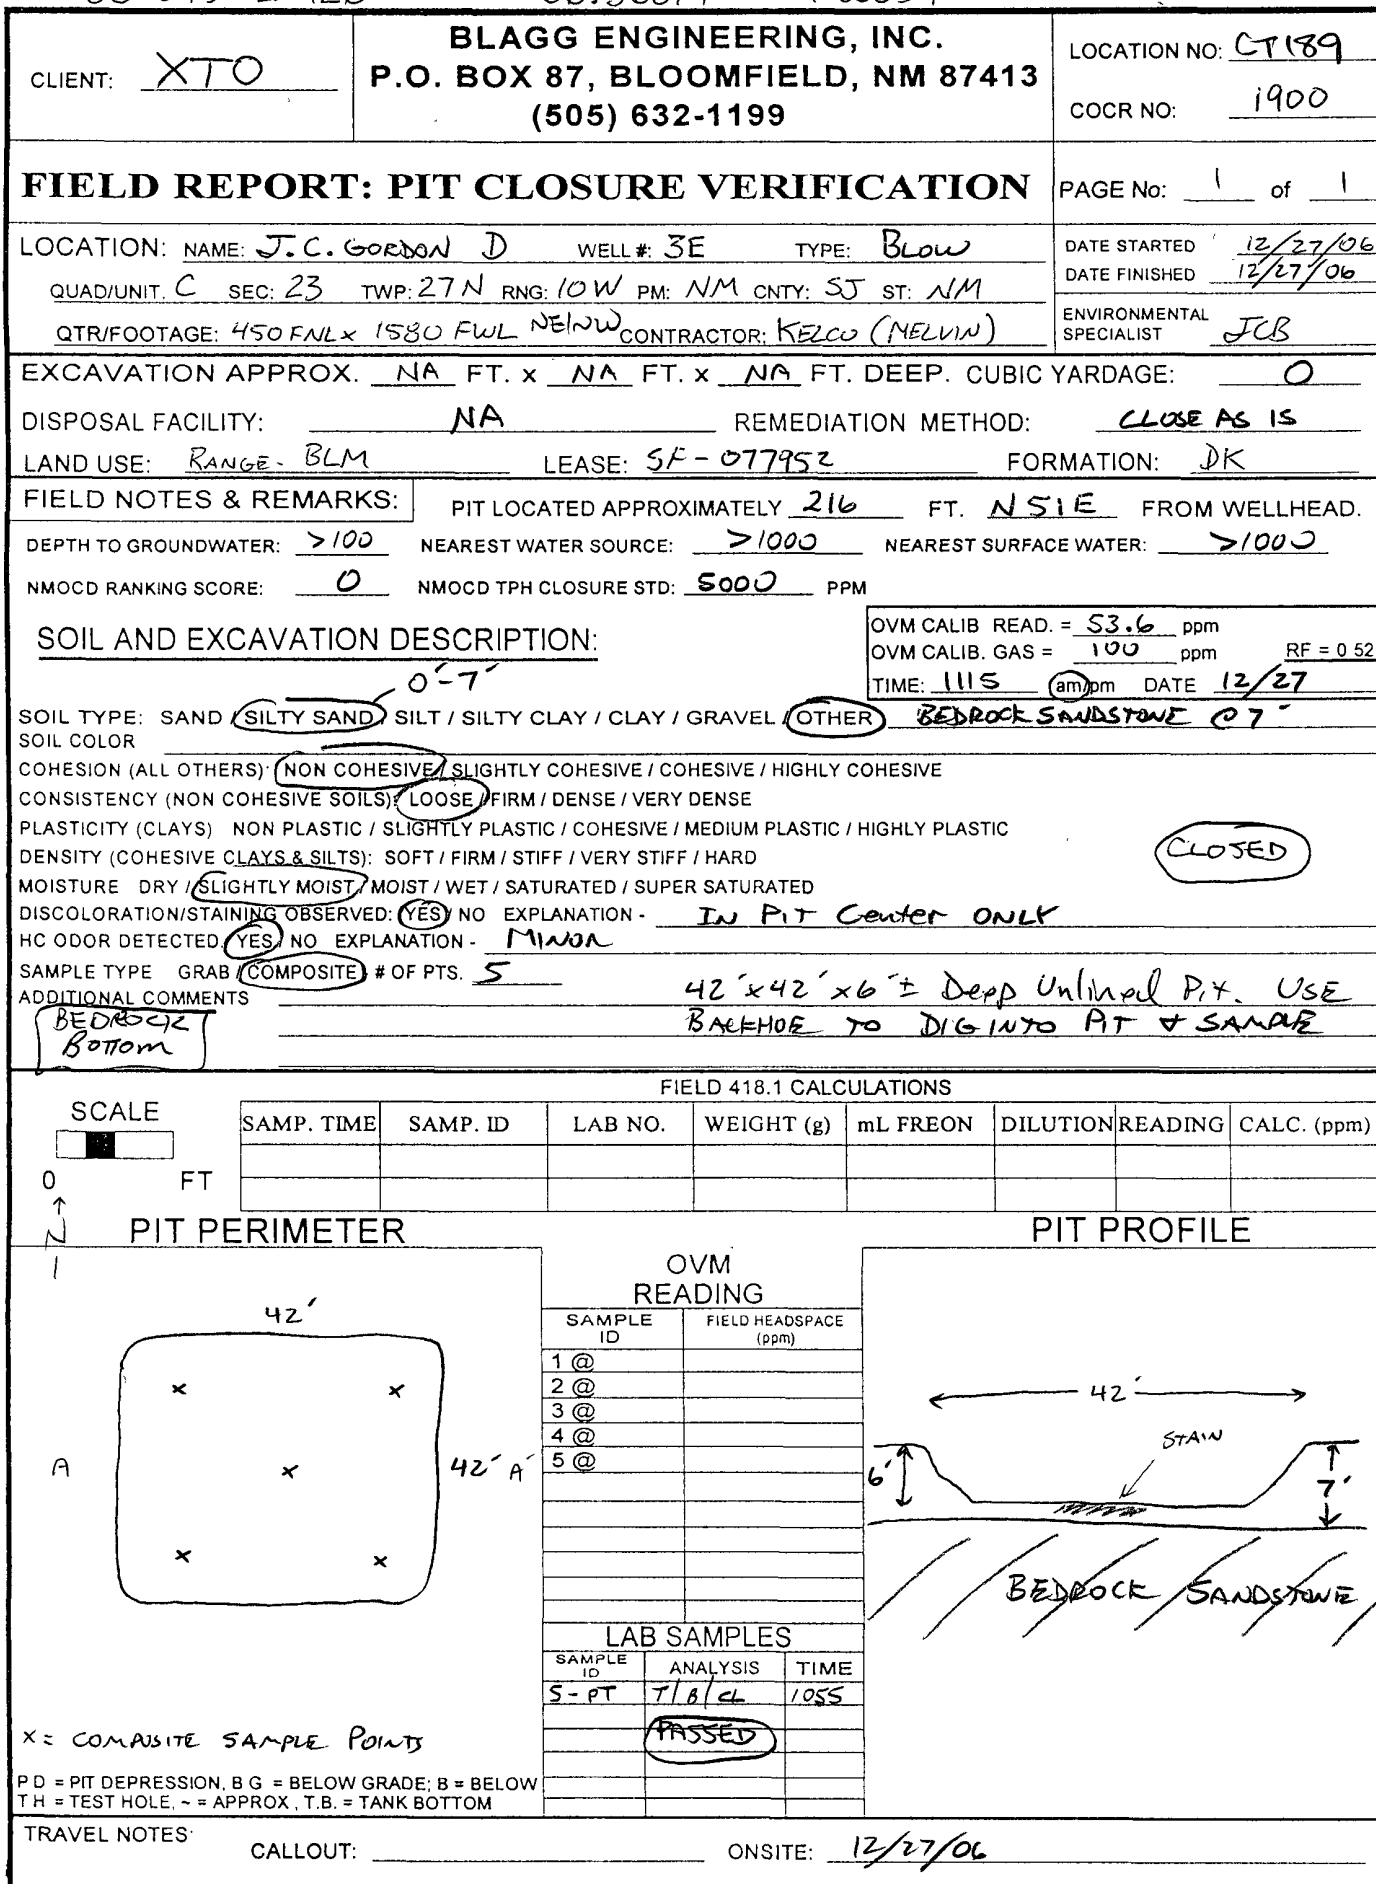 BLAGG ENGINEERING, INC.
P.O. BOX 87, BLOOMFIELD, NM 87413
(505) 632-1199
CLIENT: XTO
LOCATION NO: CT189
COCR NO: 1900
FIELD REPORT: PIT CLOSURE VERIFICATION
PAGE No: 1 of 1
LOCATION: NAME: J.C. GORDON D WELL #: 3E TYPE: BLOW
QUAD/UNIT. C SEC: 23 TWP: 27N RNG: 10W PM: NM CNTY: SJ ST: NM
QTR/FOOTAGE: 450 FNL x 1580 FWL NE/NW CONTRACTOR: KELCO (MELVIN)
DATE STARTED 12/27/06
DATE FINISHED 12/27/06
ENVIRONMENTAL
SPECIALIST JCB
EXCAVATION APPROX. NA FT. x NA FT. x NA FT. DEEP. CUBIC YARDAGE: 0
DISPOSAL FACILITY: NA REMEDIATION METHOD: CLOSE AS IS
LAND USE: RANGE - BLM LEASE: SF-077952 FORMATION: DK
FIELD NOTES & REMARKS: PIT LOCATED APPROXIMATELY 216 FT. N51E FROM WELLHEAD.
DEPTH TO GROUNDWATER: >100 NEAREST WATER SOURCE: >1000 NEAREST SURFACE WATER: >1000
NMOCD RANKING SCORE: 0 NMOCD TPH CLOSURE STD: 5000 PPM
SOIL AND EXCAVATION DESCRIPTION:
OVM CALIB READ. = 53.6 ppm
OVM CALIB. GAS = 100 ppm RF = 0 52
TIME: 1115 am/pm DATE 12/27
0'-7'
SOIL TYPE: SAND / SILTY SAND / SILT / SILTY CLAY / CLAY / GRAVEL / OTHER BEDROCK SANDSTONE @ 7'
SOIL COLOR
COHESION (ALL OTHERS): NON COHESIVE / SLIGHTLY COHESIVE / COHESIVE / HIGHLY COHESIVE
CONSISTENCY (NON COHESIVE SOILS): LOOSE / FIRM / DENSE / VERY DENSE
PLASTICITY (CLAYS) NON PLASTIC / SLIGHTLY PLASTIC / COHESIVE / MEDIUM PLASTIC / HIGHLY PLASTIC
DENSITY (COHESIVE CLAYS & SILTS): SOFT / FIRM / STIFF / VERY STIFF / HARD
CLOSED
MOISTURE DRY / SLIGHTLY MOIST / MOIST / WET / SATURATED / SUPER SATURATED
DISCOLORATION/STAINING OBSERVED: YES / NO EXPLANATION - IN PIT Center ONLY
HC ODOR DETECTED: YES / NO EXPLANATION - MINOR
SAMPLE TYPE GRAB / COMPOSITE # OF PTS. 5
ADDITIONAL COMMENTS 42' x 42' x 6' ± Deep Unlined Pit. USE
BACKHOE TO DIG INTO PIT & SAMPLE
BEDROCK
BOTTOM
FIELD 418.1 CALCULATIONS
SCALE
0 FT
SAMP. TIME SAMP. ID LAB NO. WEIGHT (g) mL FREON DILUTION READING CALC. (ppm)
N
PIT PERIMETER
42'
A 42' A'
x = COMPOSITE SAMPLE POINTS
P D = PIT DEPRESSION, B G = BELOW GRADE; B = BELOW
T H = TEST HOLE, ~ = APPROX , T.B. = TANK BOTTOM
OVM
READING
SAMPLE ID FIELD HEADSPACE (ppm)
1 @
2 @
3 @
4 @
5 @
LAB SAMPLES
SAMPLE ID ANALYSIS TIME
5-PT T/B/CL 1055
PASSED
PIT PROFILE
42'
STAIN
6'
7'
BEDROCK SANDSTONE
TRAVEL NOTES:
CALLOUT: ONSITE: 12/27/06